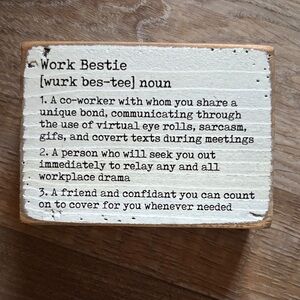 Work Bestie
[wurk bes-tee] noun
1. A co-worker with whom you share a
unique bond, communicating through
the use of virtual eye rolls, sarcasm,
gifs, and covert texts during meetings
2. A person who will seek you out
immediately to relay any and all
workplace drama
3. A friend and confidant you can count
on to cover for you whenever needed